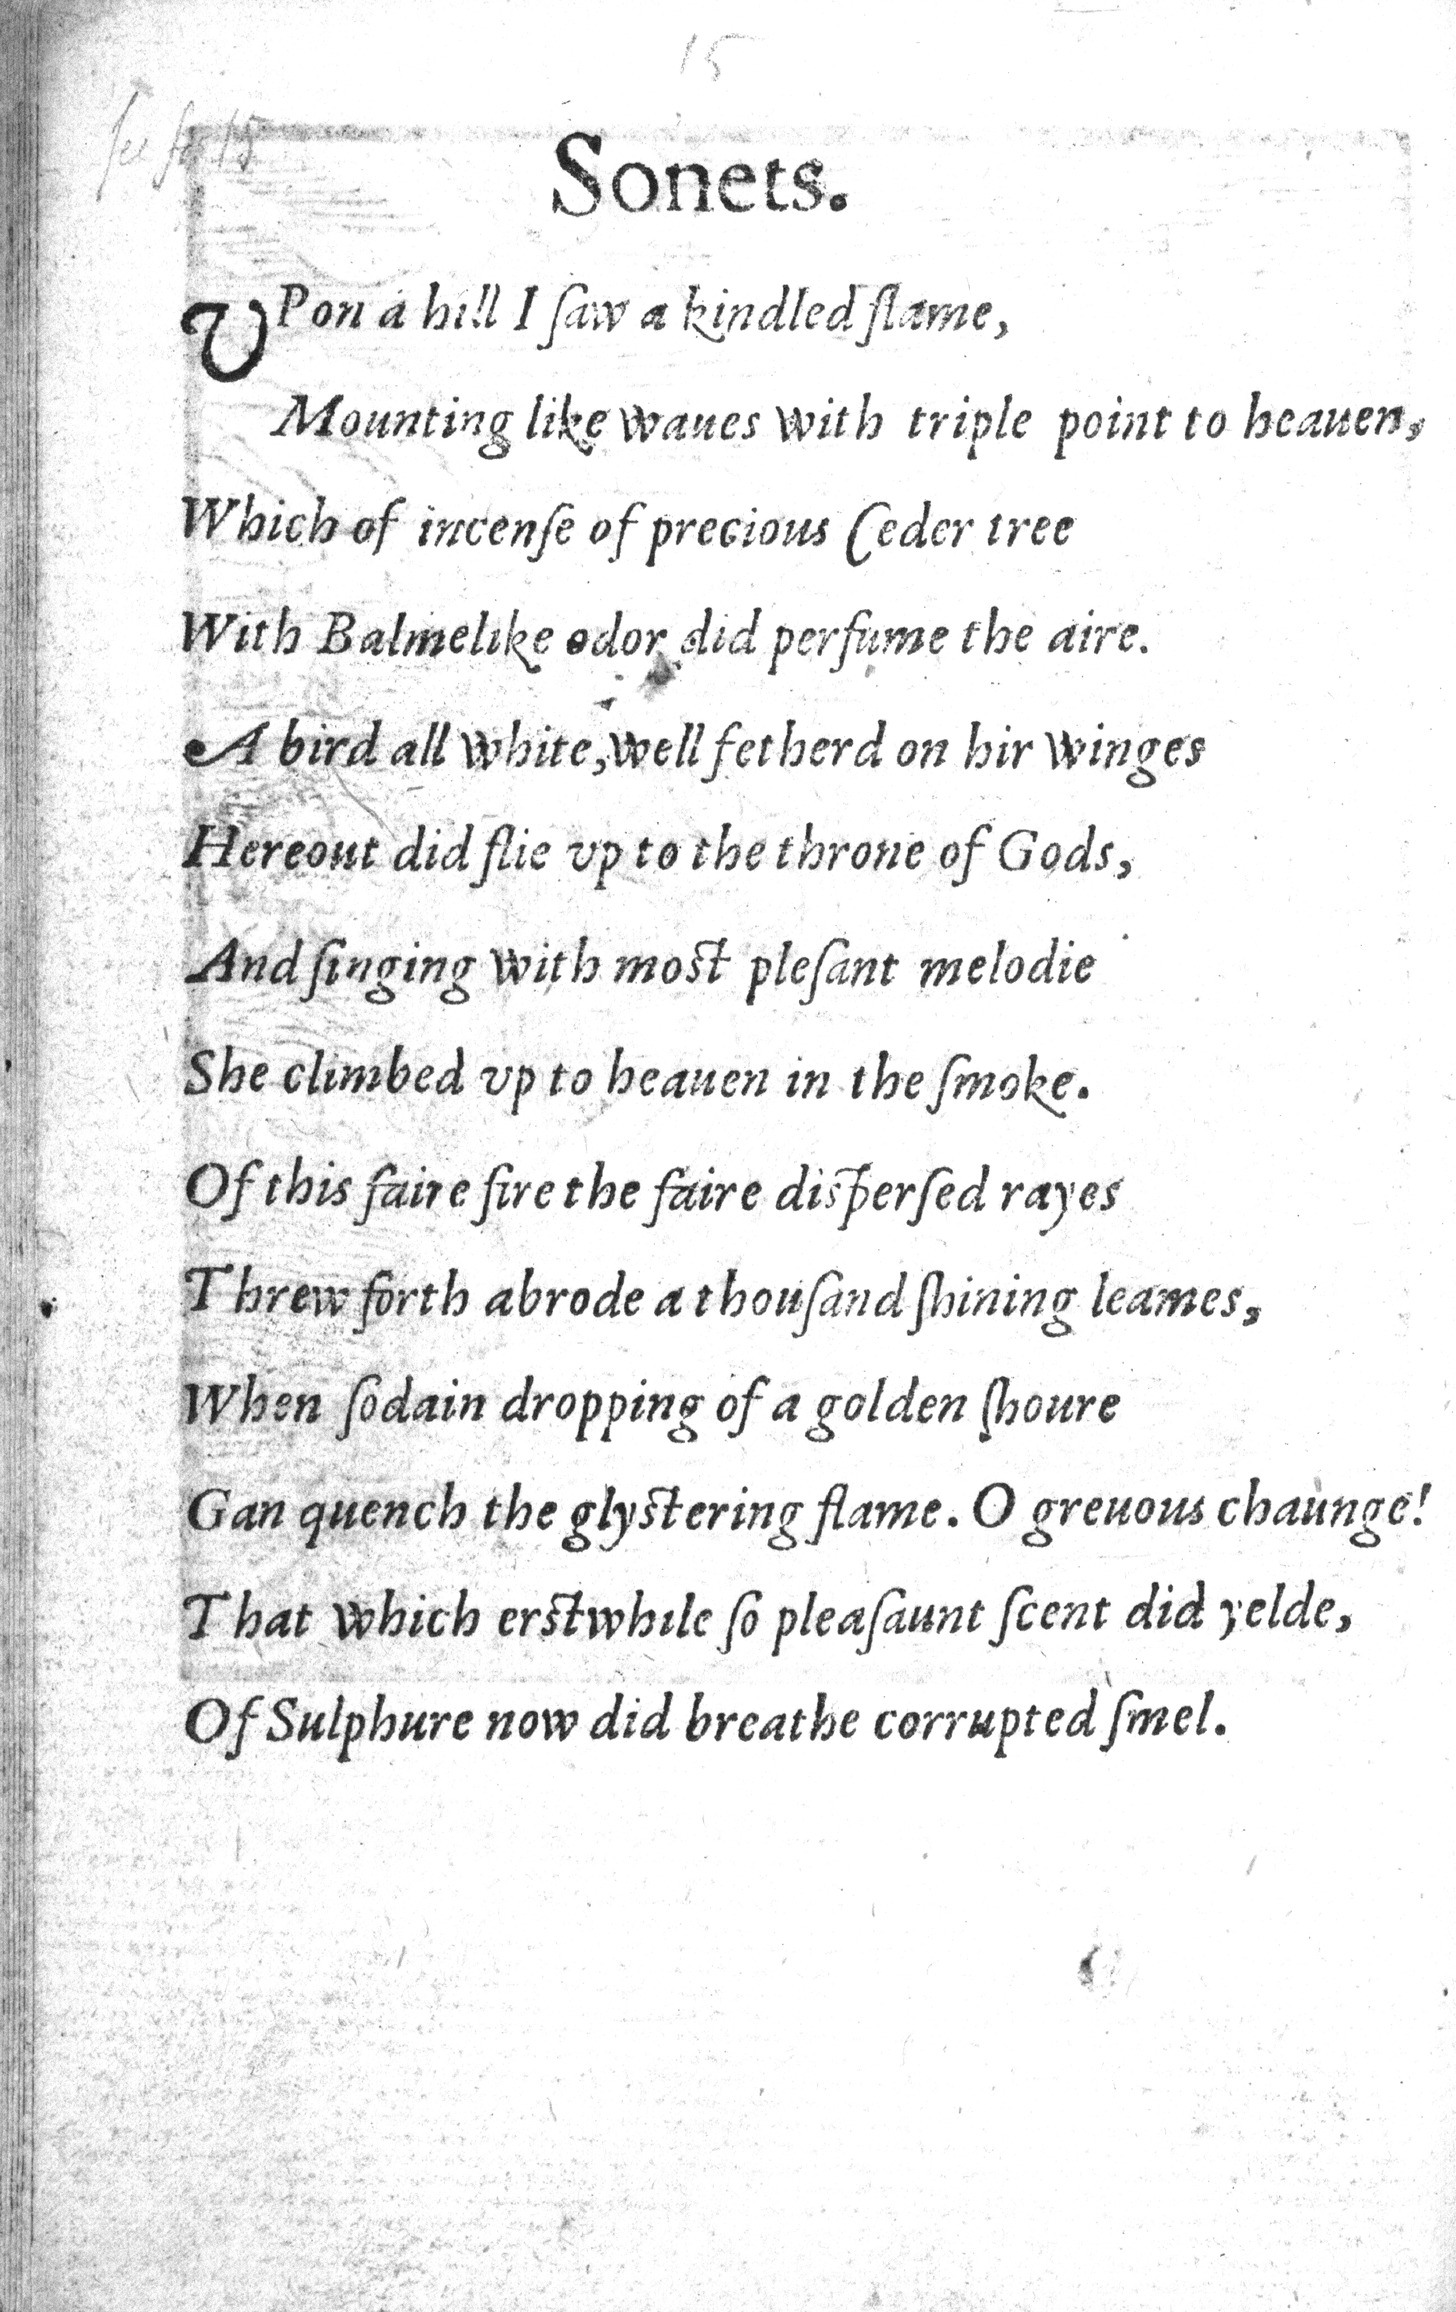 15
see fo 15
Sonets.
VPon a hill I ſaw a kindled flame,
Mounting like waues with triple point to heauen,
Which of incenſe of precious Ceder tree
With Balmelike odor did perfume the aire.
A bird all white, well fetherd on hir winges
Hereout did flie vp to the throne of Gods,
And ſinging with moſt pleſant melodie
She climbed vp to heauen in the ſmoke.
Of this faire fire the faire diſperſed rayes
Threw forth abrode a thouſand ſhining leames,
When ſodain dropping of a golden ſhoure
Gan quench the glyſtering flame. O greuous chaunge!
That which erſtwhile ſo pleaſaunt ſcent did yelde,
Of Sulphure now did breathe corrupted ſmel.